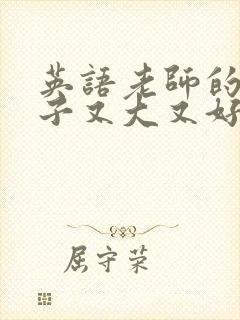 英語老師的
子又大又好
屈守荣